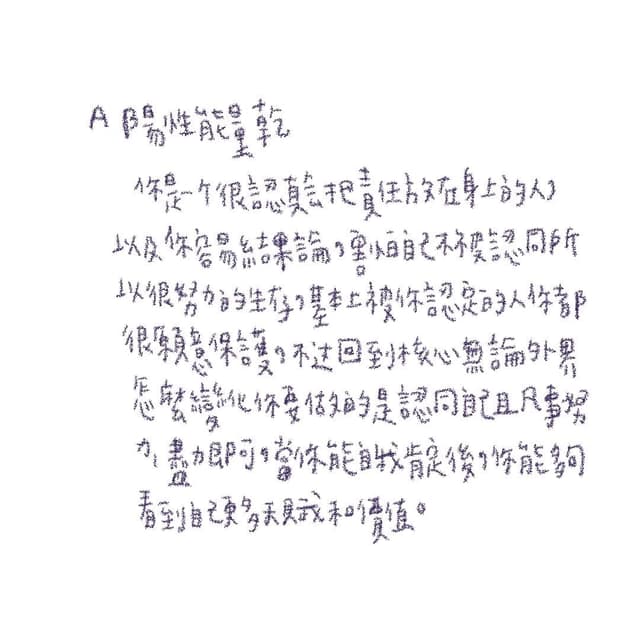 A 陽性能量乾
你是一个很認真会把責任放在身上的人,
以及你容易結果論,害怕自己不被認同所
以很努力的生存,基本上被你認定的人你都
很願意保護,不过回到核心無論外界
怎麼變化你要做的是認同自己且凡事努
力盡力即可,當你能自我肯定後,你能夠
看到自己更多天賦和價值。